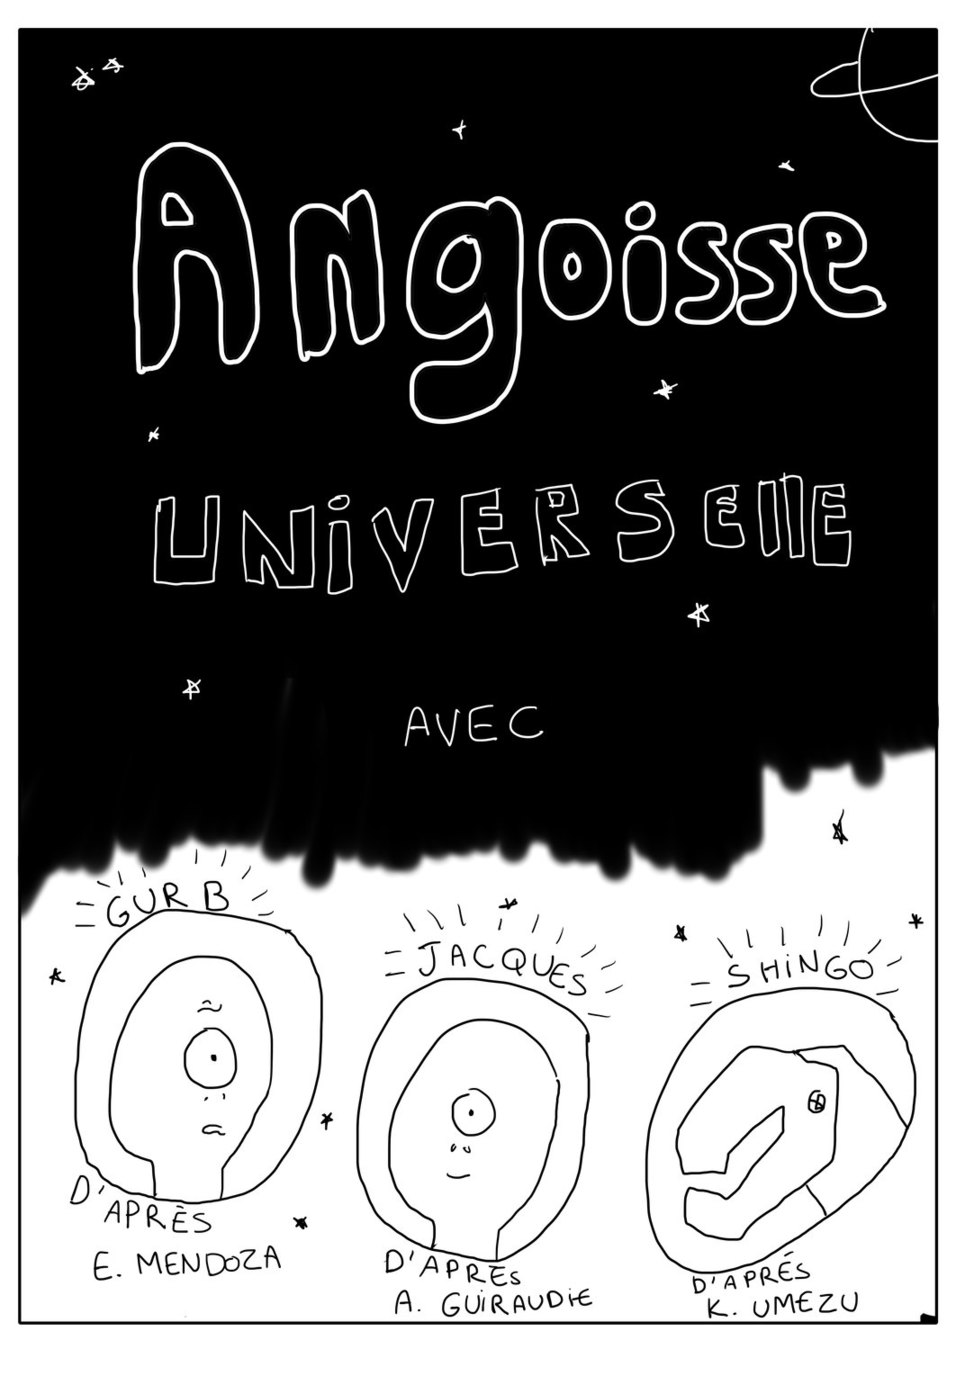 Angoisse
UNiVERSEllE
AVEC
GURB
D'APRÈS
E. MENDOZA
JACQUES
D'APRÈS
A. GUiRAUDiE
SHiNGO
D'APRÉS
K. UMEZU